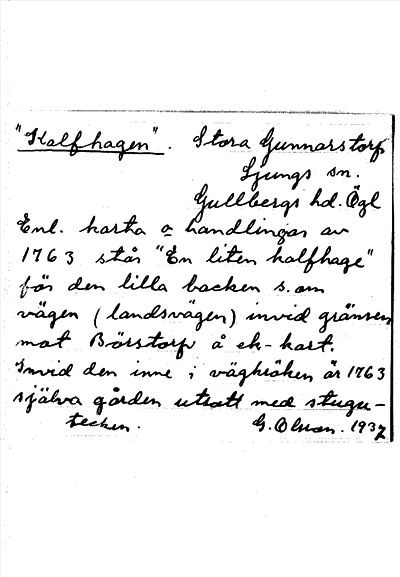 "Kalfhagen". Stora Gunnarstorp
Ljungs sn.
Gullbergs hd. Ögl
Enl. karta o handlingar av
1763 står "En liten kalfhage"
för den lilla backen s. om
vägen (landsvägen) invid gränsen
mot Börstorp å ek-kart.
Invid den inne i vägkröken är 1763
själva gården utsatt med stugu-
tecken. G. Olson. 1937